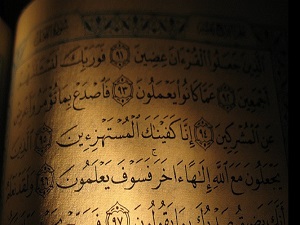 الَّذِينَ جَعَلُوا۟ الْقُرْءَانَ عِضِينَ ﴿٩١﴾ فَوَرَبِّكَ
أَجْمَعِينَ ﴿٩٢﴾ عَمَّا كَانُوا۟ يَعْمَلُونَ ﴿٩٣﴾ فَاصْدَعْ بِمَا تُؤْمَرُ
عَنِ الْمُشْرِكِينَ ﴿٩٤﴾ إِنَّا كَفَيْنَاكَ الْمُسْتَهْزِءِينَ ﴿٩٥﴾ الَّذِينَ
يَجْعَلُونَ مَعَ اللَّهِ إِلَٰهًا ءَاخَرَ ۚ فَسَوْفَ يَعْلَمُونَ ﴿٩٦﴾ وَلَقَدْ نَعْلَمُ
أَنَّكَ يَضِيقُ صَدْرُكَ بِمَا يَقُولُونَ ﴿٩٧﴾ فَسَبِّحْ